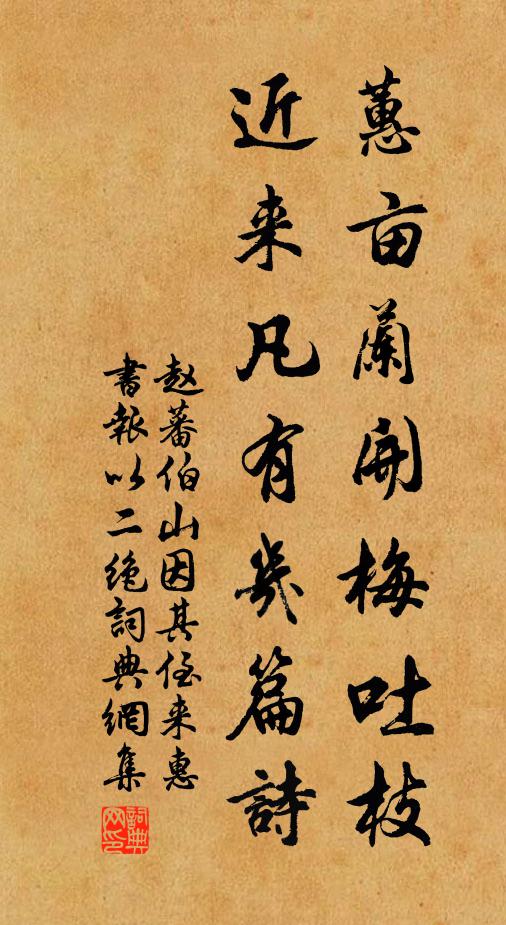 蕙亩蘭開梅吐枝
近来凡有幾篇詩
赵蕃伯山因其侄来惠
書報以二绝詞典網集
詞典网印